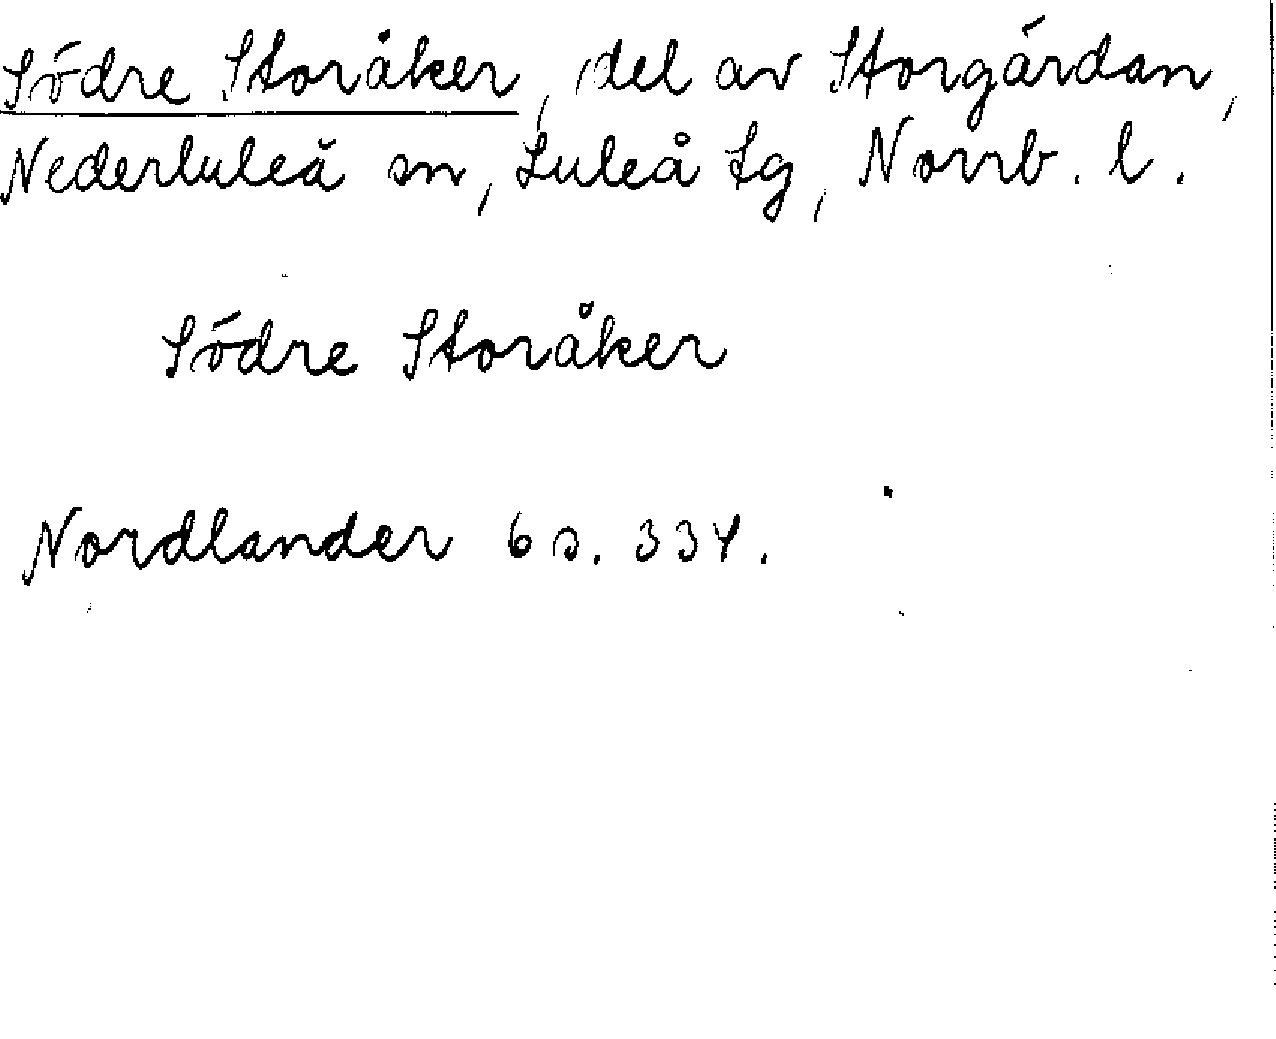 Södre Storåker, del av Storgárdan,
Nederluleå sn, Luleå Lg, Norrb. l.
Södre Storåker
Nordlander 6 s. 334.